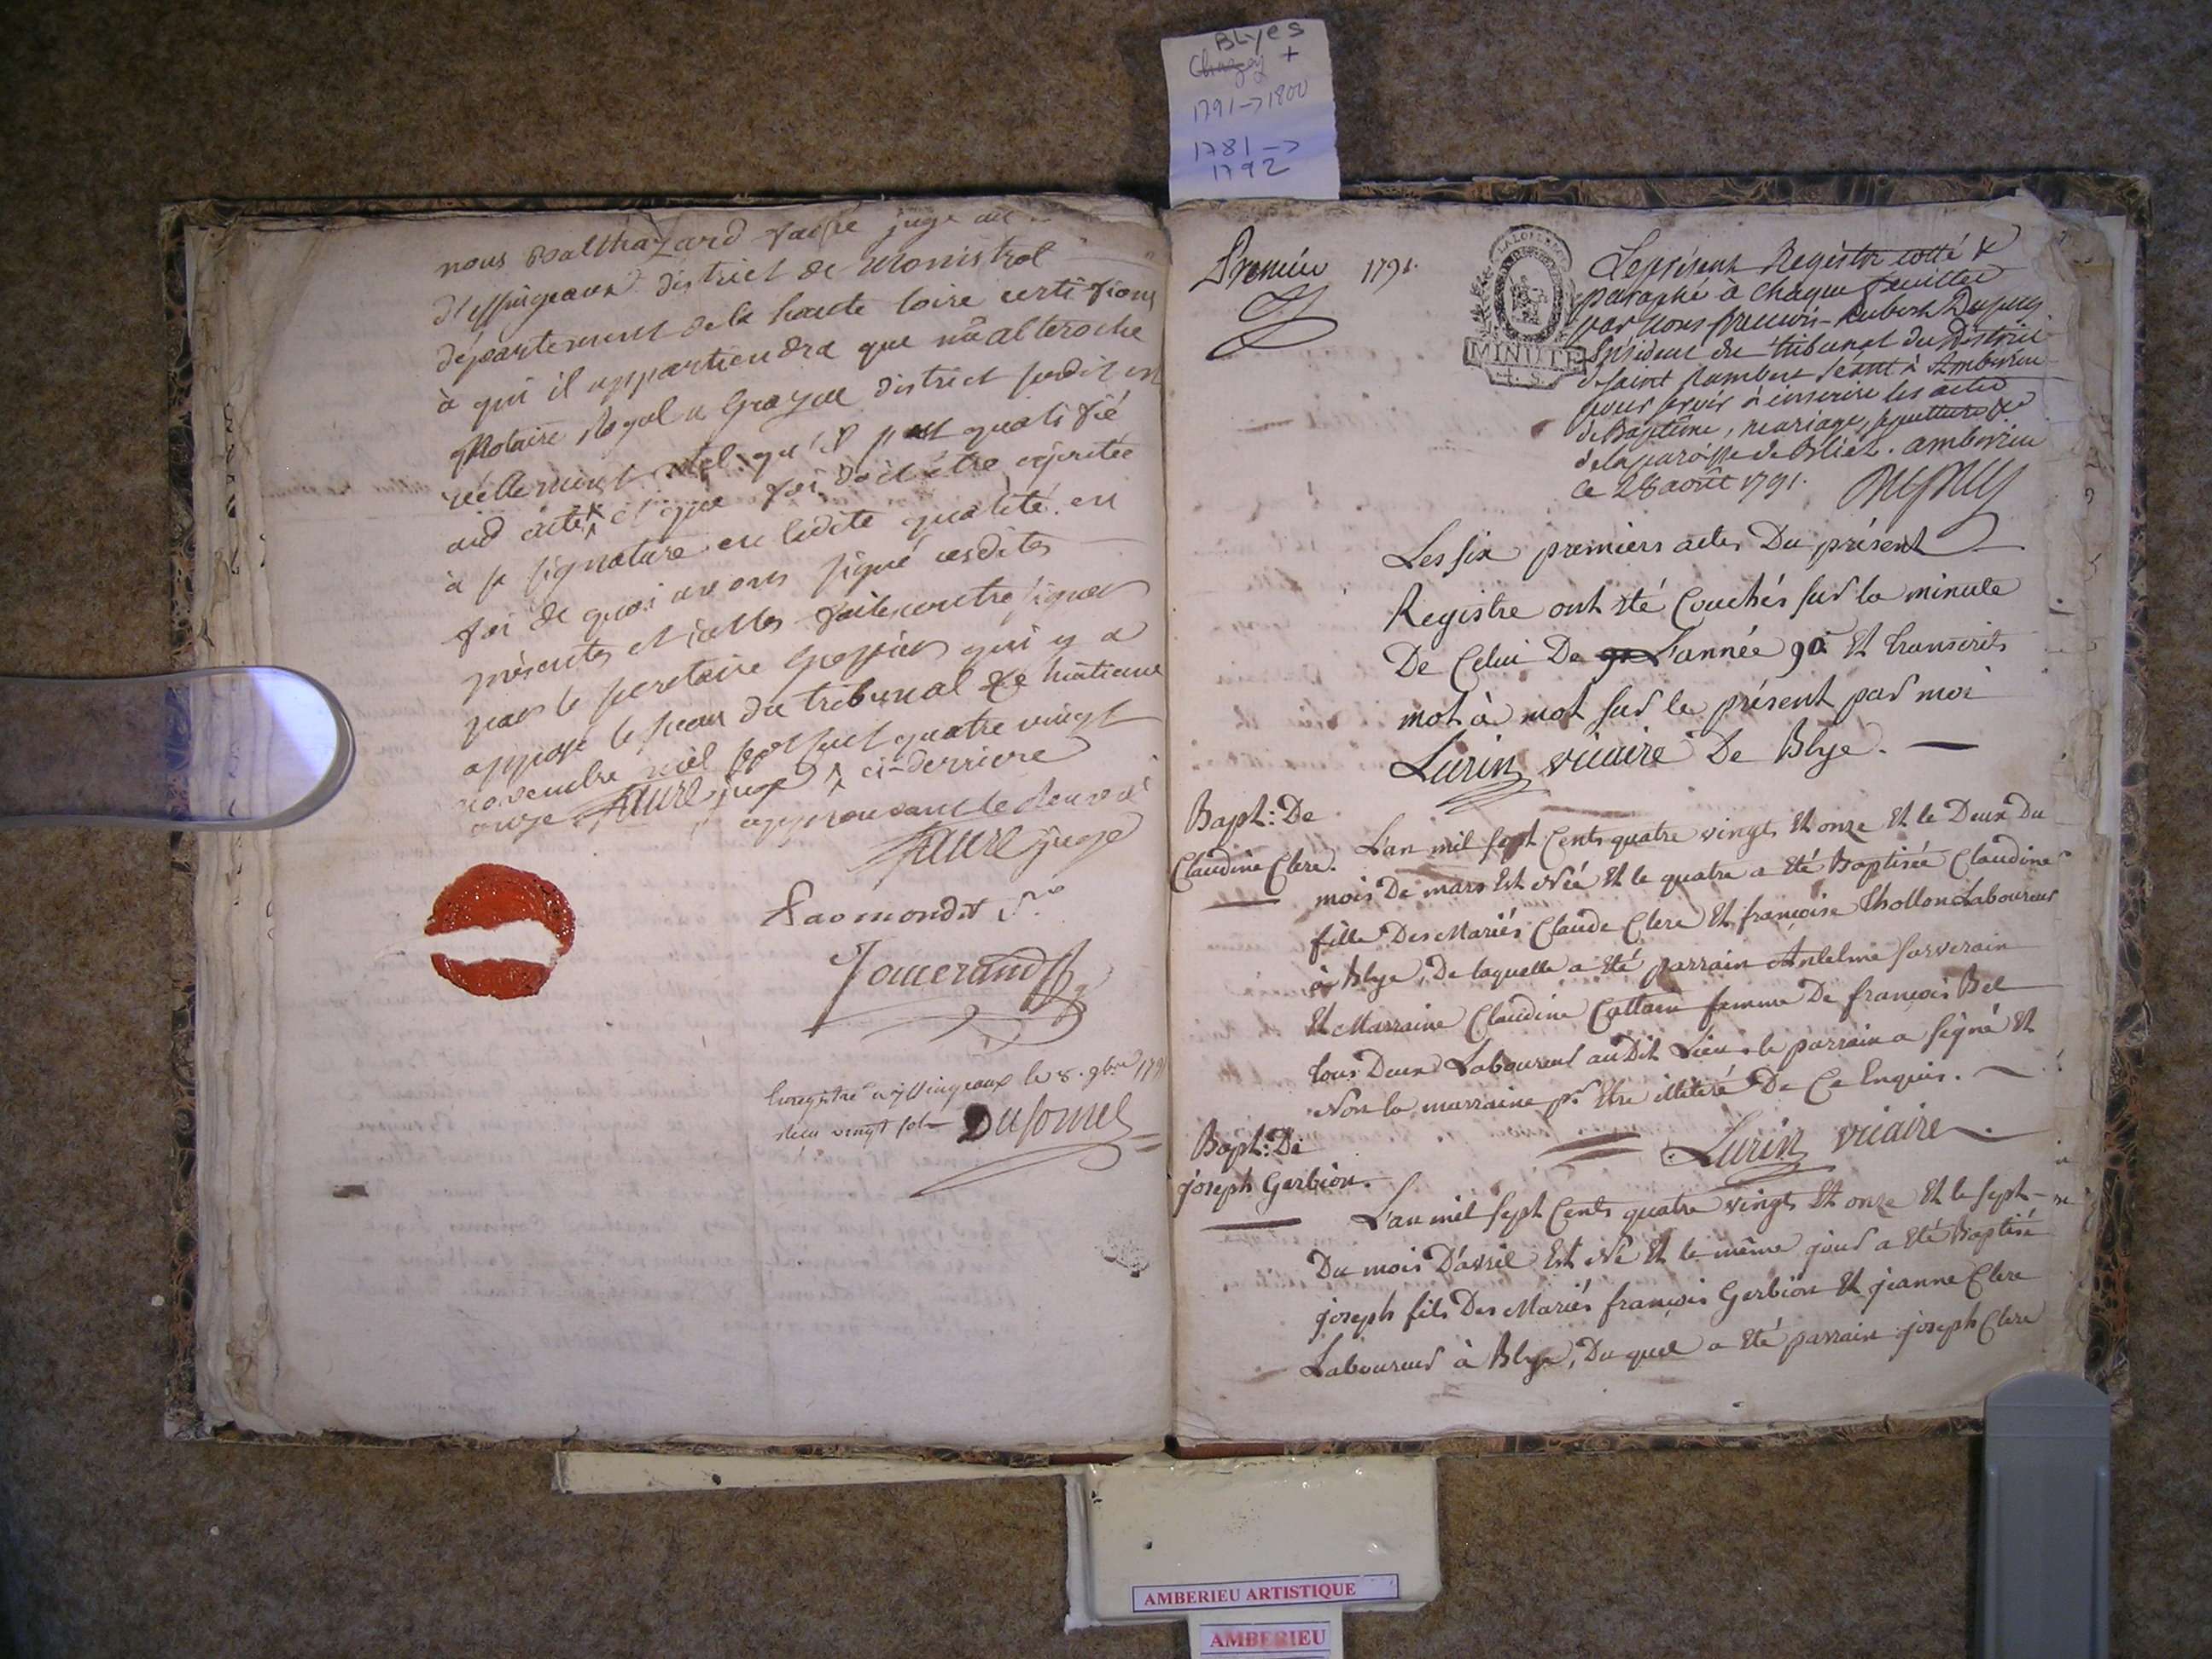 BLyes
Chazey +
1791->1800
1781->
1792
nous Balthazard faure juge au
d'issingeaux district de Monistrol
département de la haute loire certifions
à qui il appartiendra que alteroche
Notaire Royal a district susdit est
réellement tel qu'il s'est qualifié
aud acte et que foi doit être ajoutée
à sa signature en ladite qualité. en
foi de quoi avons signé cesdites
présentes et icelles fait contresigner
par le secretaire greffier qui y a
apposé le sceau du tribunal ce huitieme
novembre mil sept cent quatre vingt
onze faure juge ci-derriere
approuvant le renvoi
faure juge
Jamerand
Enregistré a issingeaux le 8. 9bre 1791
Recu vingt sols
Premier 1791.
MINUTE
4. S
Le présent Registre cotté &
paraphé à chaque feuillet
par nous françois-hubert Dupuy
Président du tribunal du District
de saint Rambert séant à Ambérieu
pour servir à inscrire les actes
de Baptême, mariage, sepulture &c
de la paroisse de Bliez. ambérieu
ce 28 août 1791. Dupuy
Les six premiers actes Du présent
Registre ont été Couchés sur la minute
De Celui De L'année 90. Et transcrits
mot à mot sur le présent par moi
Lurin vicaire De Blye.
Bapt: De
Claudine Clere.
L'an mil sept Cents quatre vingts Et onze Et le Deux Du
mois De mars Est Née Et le quatre a Eté Baptisée Claudine
fille Des Mariés Claude Clere Et françoise Chollon Laboureur
à Blye, De laquelle a Eté parrain Antelme sarverain
Et Marraine Claudine Cottam femme De françois Bel
tous Deux Laboureurs au Dit Lieu. le parrain a signé Et
Non la marraine pr Etre illiterée De Ce Enquis.
Lurin vicaire.
Bapt: De
joseph Gerbion.
L'an mil sept Cents quatre vingts Et onze Et le sept
Du mois D'avril Est Né Et le même jour a Eté Baptisé
joseph fils Des Mariés françois Gerbion Et jeanne Clere
Laboureurs à Blye, Du quel a Eté parrain joseph Clere
AMBERIEU ARTISTIQUE
AMBERIEU